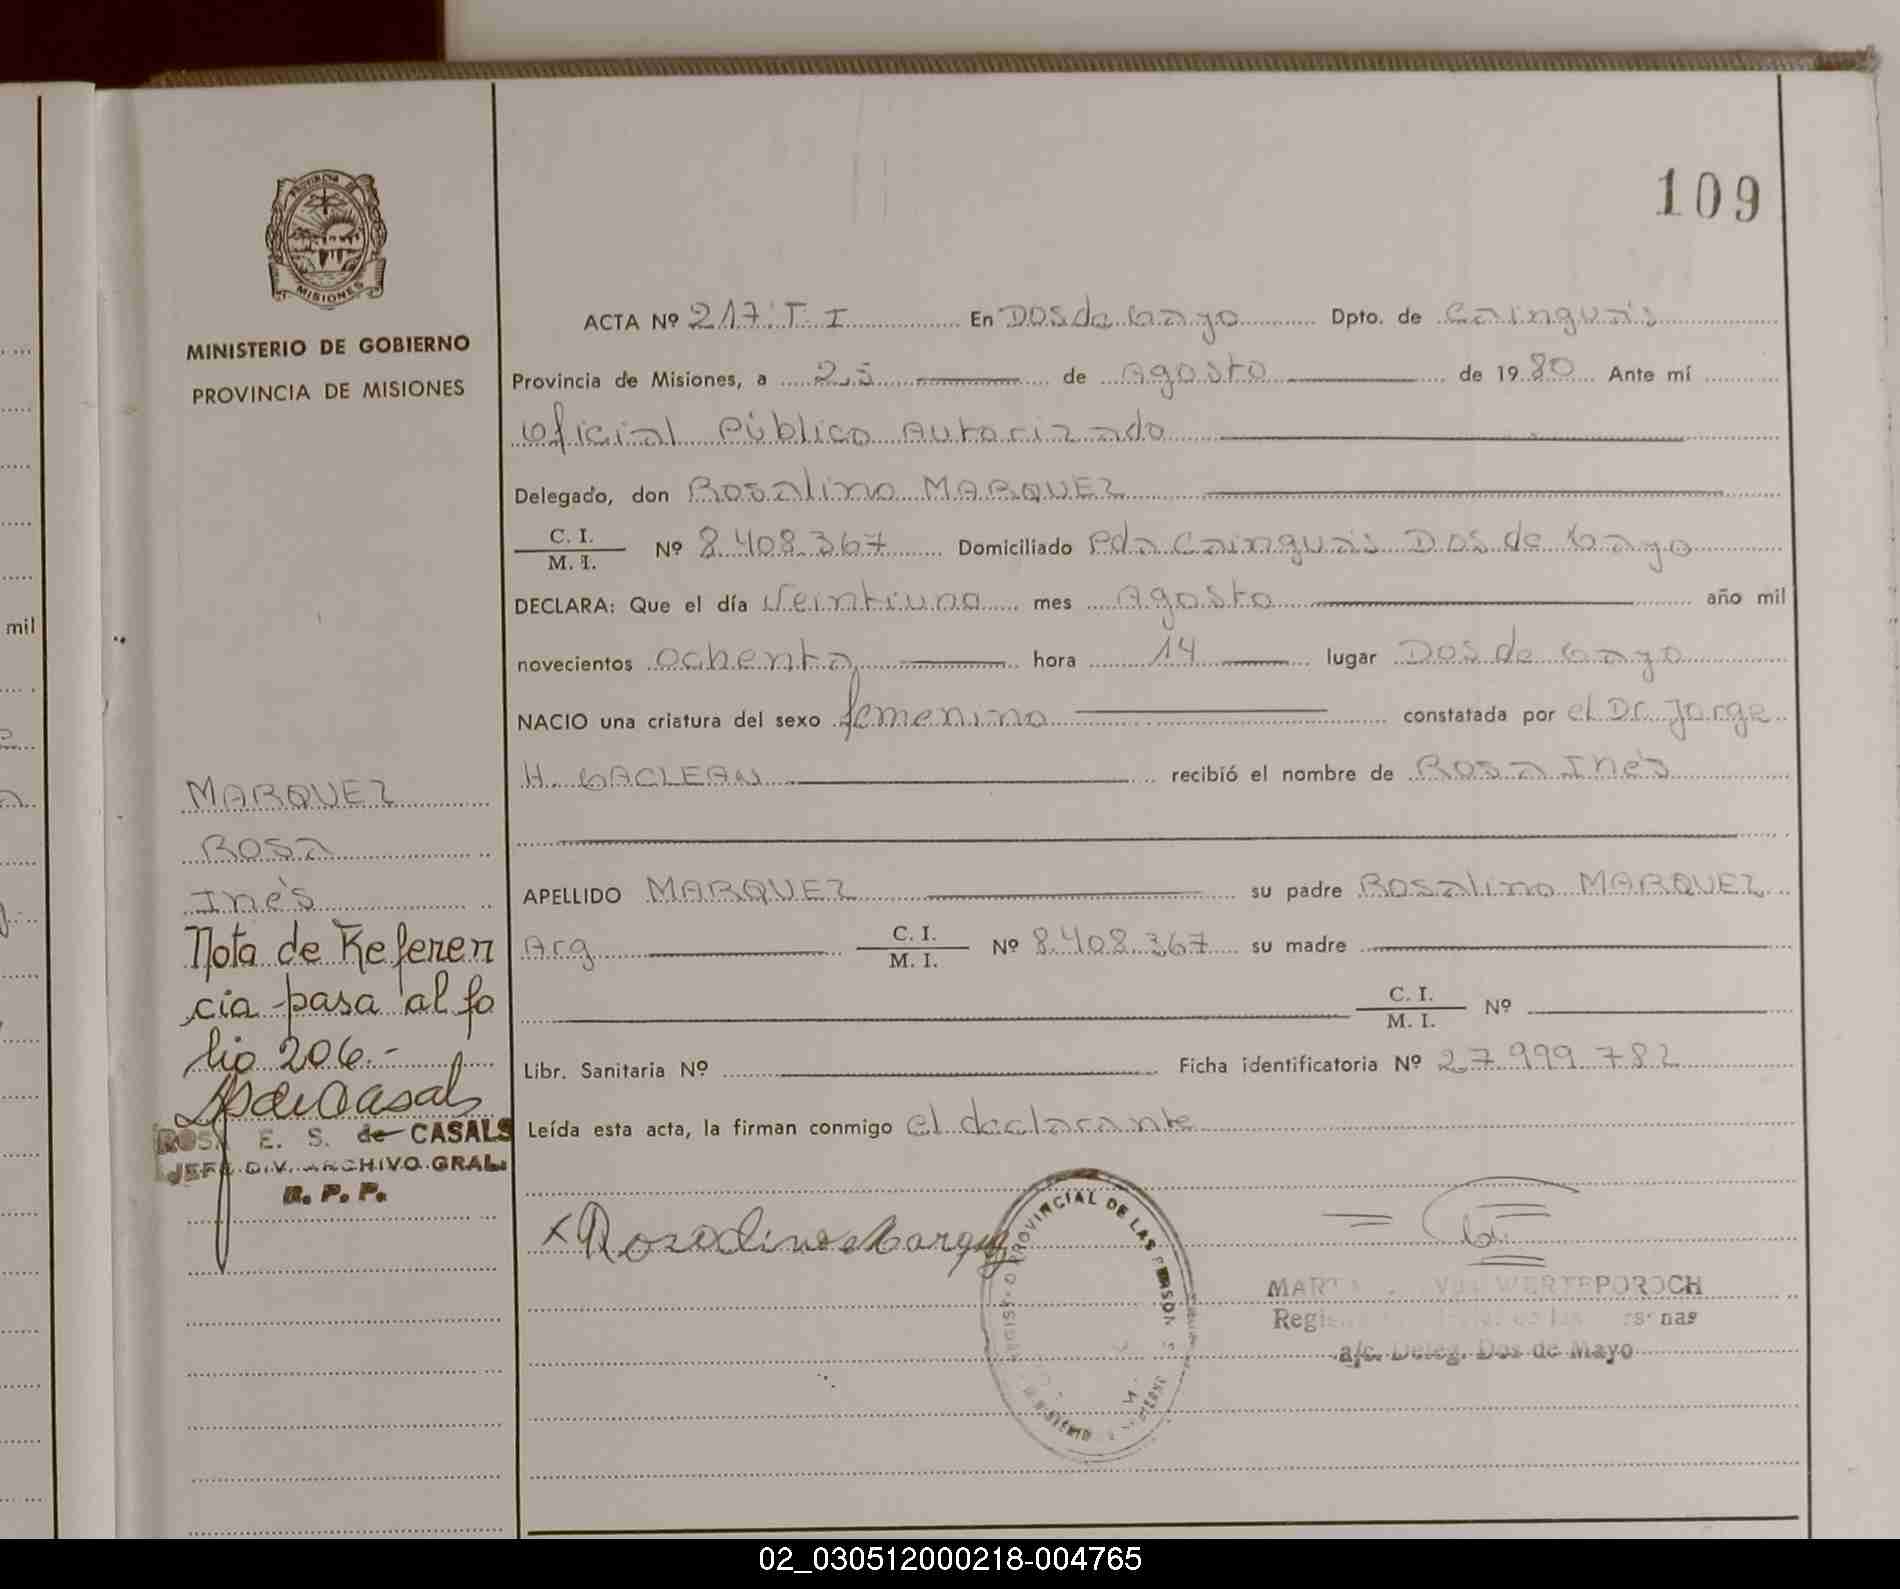 109
PROVINCIA DE
MISIONES
MINISTERIO DE GOBIERNO
PROVINCIA DE MISIONES
ACTA Nº 217 T I En Dos de Mayo Dpto. de Cainguás
Provincia de Misiones, a 25 de Agosto de 1980 Ante mí
Oficial Público Autorizado
Delegado, don Rosalino MARQUEZ
C. I.
M. I. Nº 8.408.367 Domiciliado Pda Cainguás Dos de Mayo
DECLARA: Que el día Veintiuno mes Agosto año mil
novecientos ochenta hora 14 lugar Dos de Mayo
NACIO una criatura del sexo femenino constatada por el Dr. Jorge
H. MACLEAN recibió el nombre de Rosa Inés
APELLIDO MARQUEZ su padre Rosalino MARQUEZ
Arg C. I.
M. I. Nº 8.408.367 su madre
C. I.
M. I. Nº
Libr. Sanitaria Nº Ficha identificatoria Nº 27.999.782
Leída esta acta, la firman conmigo el declarante
MARQUEZ
Rosa
Inés
Nota de Referen
cia pasa al fo
lio 206.-
de Casals
E. S. de CASALS
JEFE DIV. ARCHIVO GRAL.
R. P. P.
x Rosalino Marquez
PROVINCIAL DE LAS
WERTEPOROCH
a/c. Deleg. Dos de Mayo
mil
02_030512000218-004765